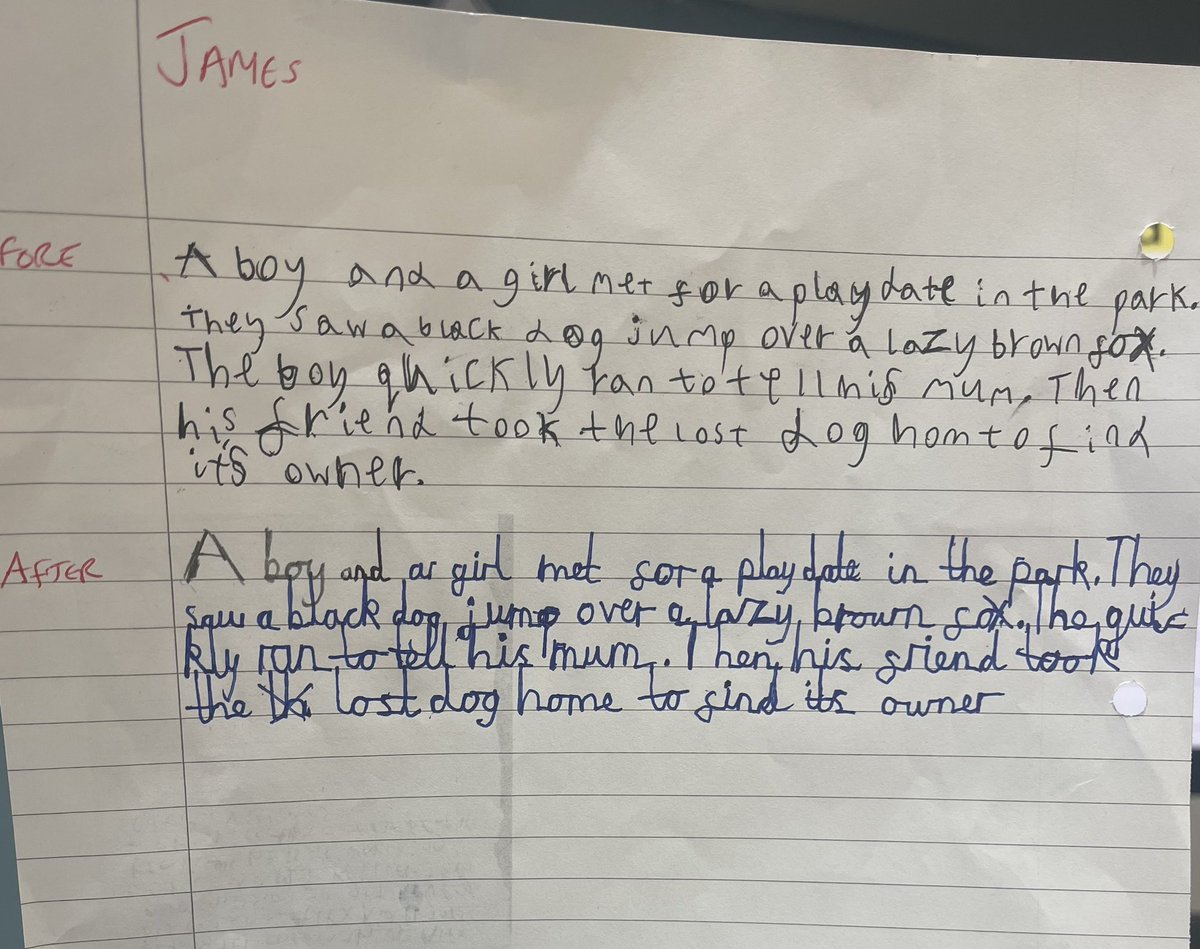 JAMES
FORE
A boy and a girl met for a play date in the park.
they saw a black dog jump over a lazy brown fox.
The boy quickly ran to tell his mum. Then
his friend took the lost dog hom to find
it's owner.
AFTER
A boy and a girl met for a play date in the park. They
saw a black dog jump over a lazy brown fox. The quic
kly ran to tell his mum. Then his friend took
the lost dog home to find its owner